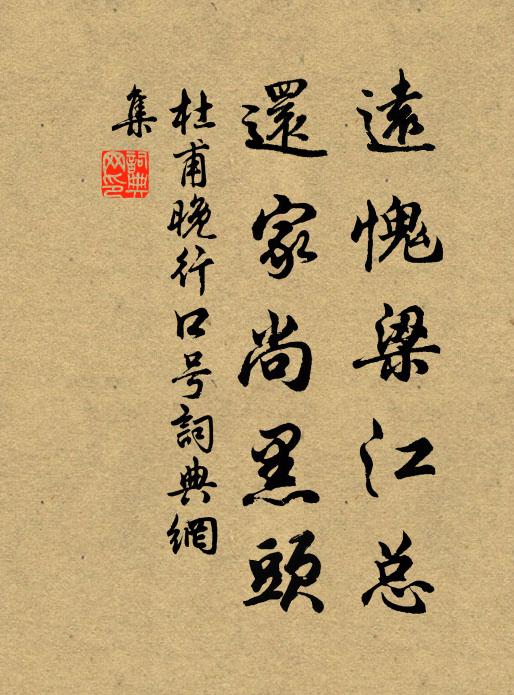 遠愧梁江总
還家尚黑頭
杜甫晚行口号詞典網
集
詞典
网印